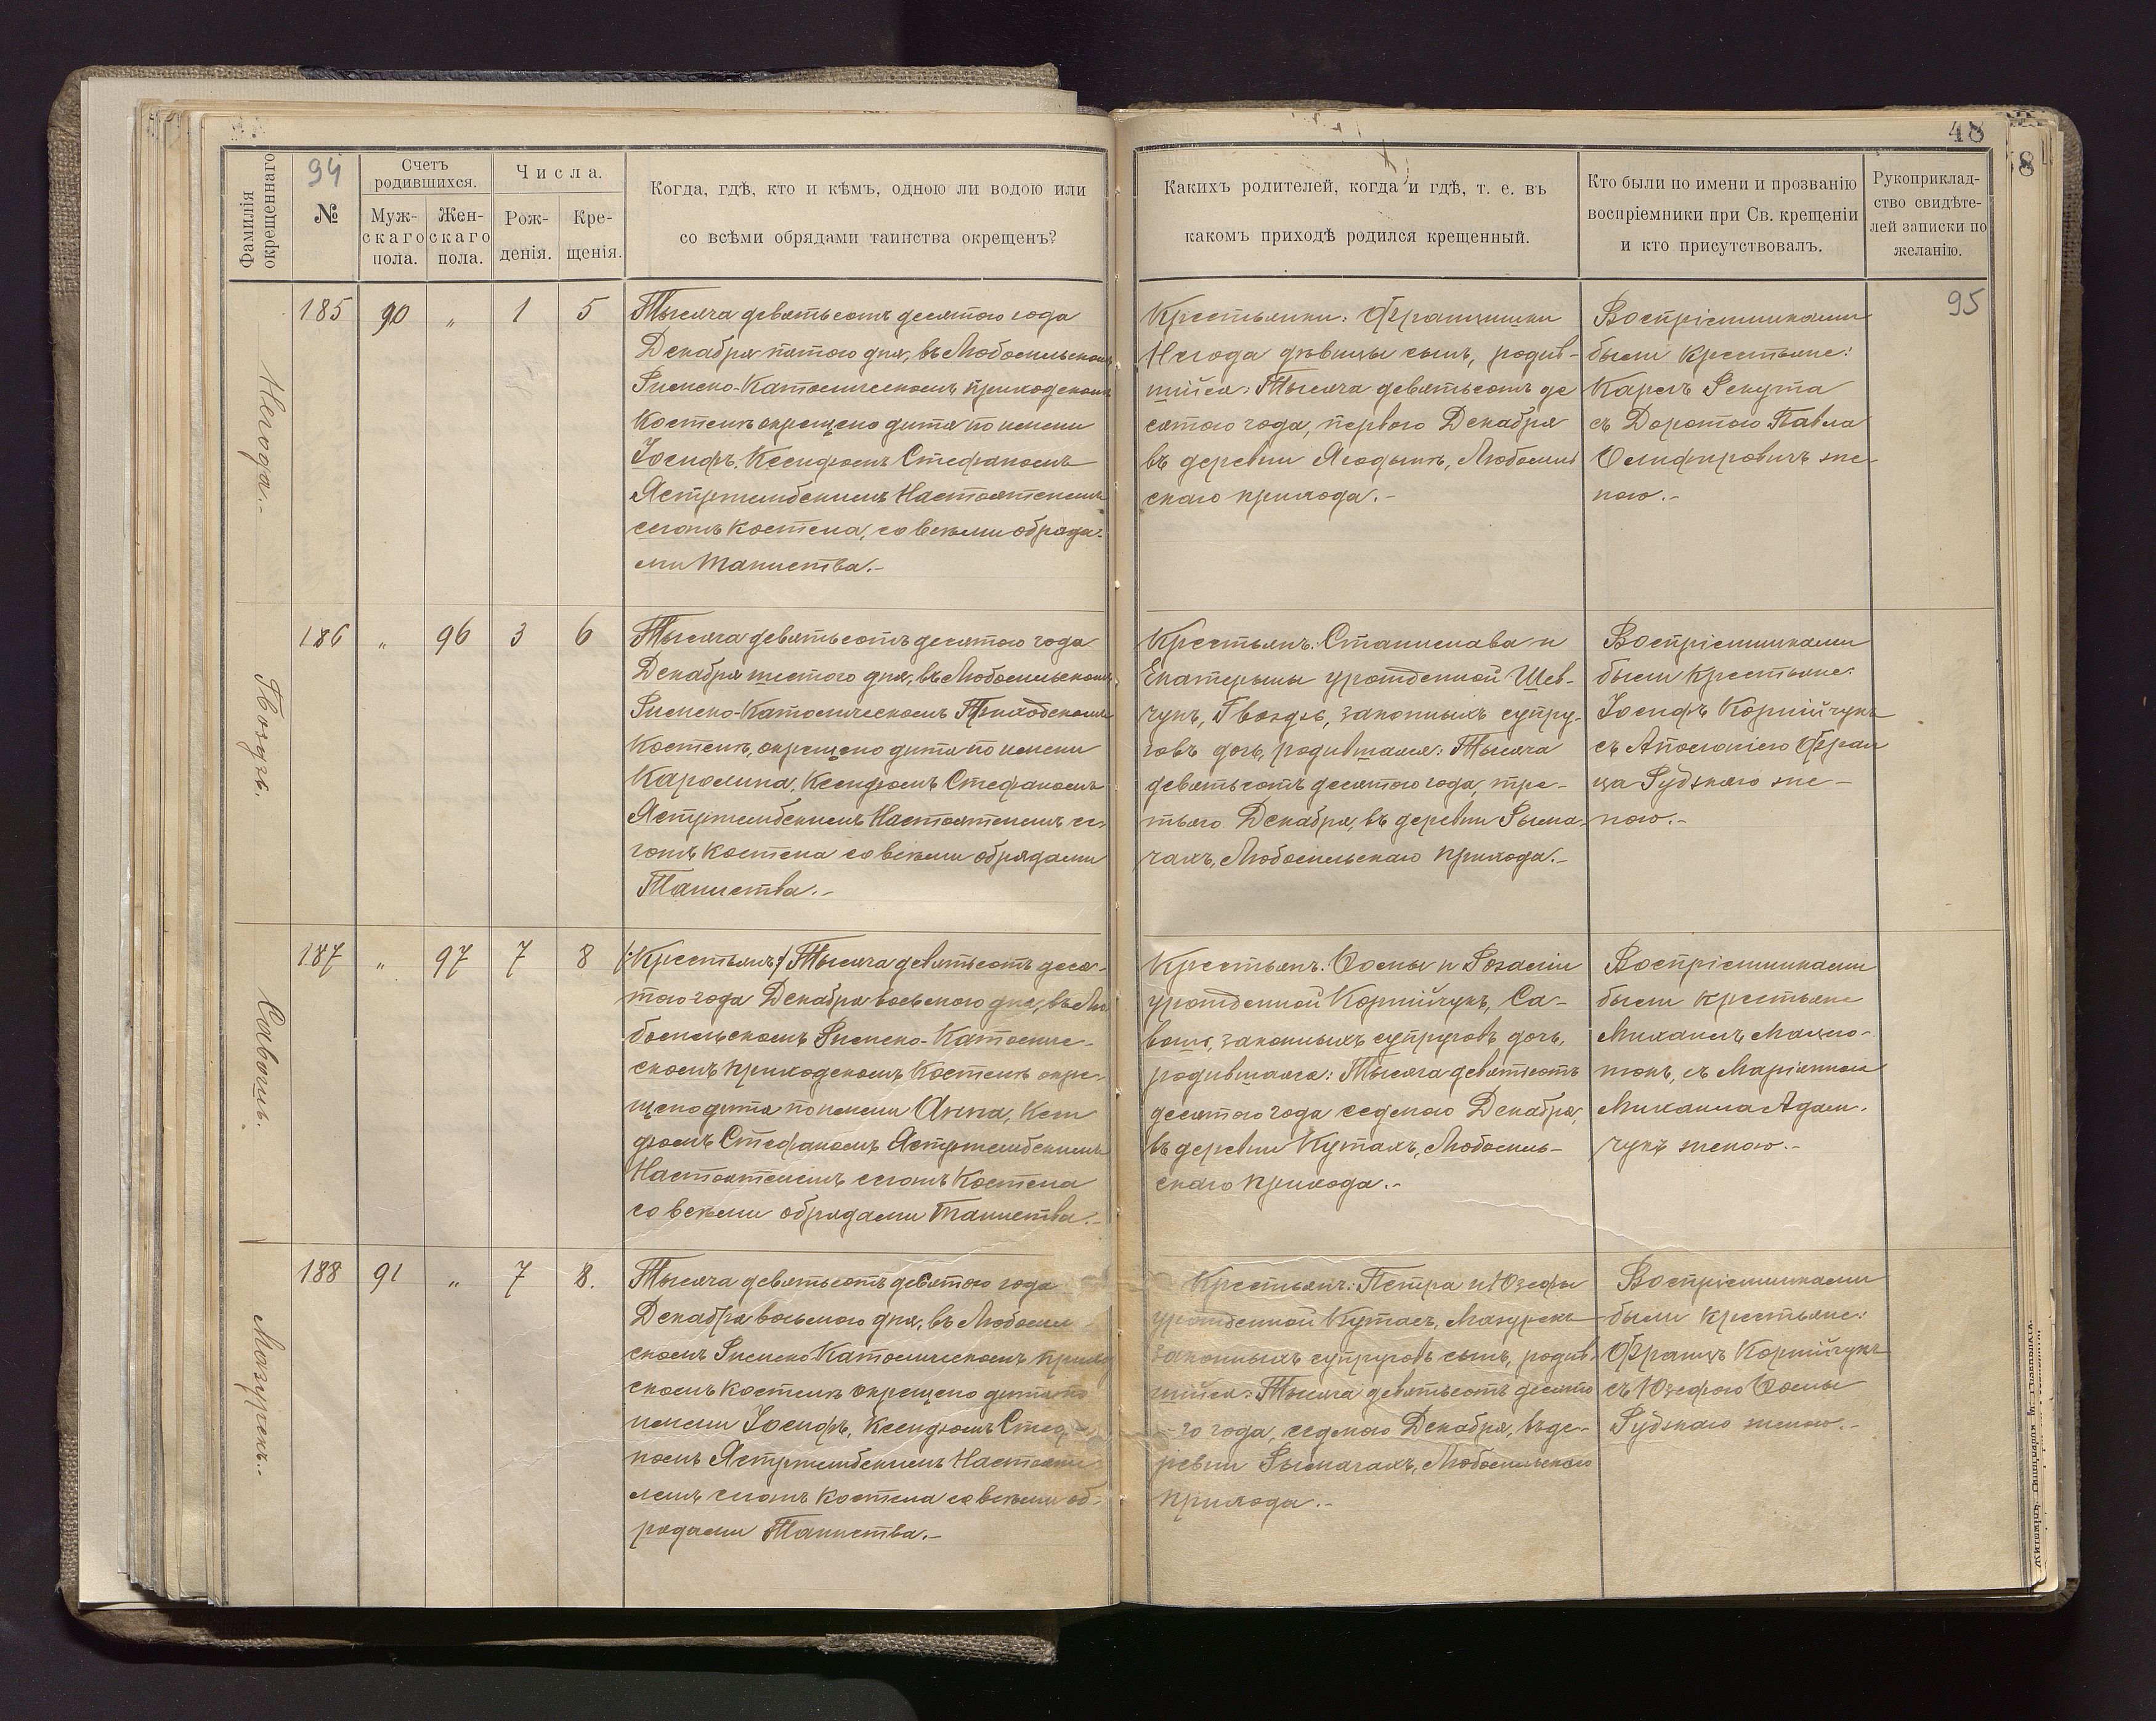 48
94
95
Фамилія окрещеннаго
№
Счетъ родившихся.
Мужскаго пола.
Женскаго пола.
Числа.
Рожденія.
Крещенія.
Когда, гдѣ, кто и кѣмъ, одною ли водою или
со всѣми обрядами таинства окрещенъ?
Какихъ родителей, когда и гдѣ, т. е. въ
какомъ приходѣ родился крещенный.
Кто были по имени и прозванію
воспріемники при Св. крещеніи
и кто присутствовалъ.
Рукоприклад-
ство свидѣте-
лей записки по
желанію.
Негода.-
185 90 „ 1 5
Тысяча девятьсотъ десятого года
Декабря пятого дня, въ Любомльскомъ
Римско-Католическомъ приходскомъ
Костелѣ окрещено дитя по имени
Іосифъ, Ксендзомъ Стефаномъ
Ястржембскимъ Настоятелемъ
сегожъ Костела, со всѣми обряда-
ми Таинства.-
Крестьянки: Францишки
Негода дѣвицы сынъ, родив-
шійся: Тысяча девятьсотъ де
сятого года, первого Декабря
въ деревни Ягодынѣ, Любомль
скаго прихода.-
Воспріемниками
были Крестьяне:
Кароль Рекута
съ Доротою Павла
Олифировичъ же-
ною.-
Гвоздь.
186 „ 96 3 6
Тысяча девятьсотъ десятого года
Декабря шестого дня, въ Любомльскомъ
Римско-Католическомъ Приходскомъ
Костелѣ, окрещено дитя по имени
Каролина, Ксендзомъ Стефаномъ
Ястржембскимъ Настоятелемъ се-
гожъ Костела со всѣми обрядами
Таинства.-
Крестьянъ: Станислава и
Екатерыны урожденной Шев-
чукъ, Гвоздь, законныхъ супру-
говъ дочь, родившаяся: Тысяча
девятьсотъ десятого года, тре-
тьяго Декабря, въ деревни Рыма-
чахъ, Любомльскаго прихода.-
Воспріемниками
были Крестьяне:
Іосифъ Корнійчукъ
съ Аполоніею Фран
ца Рудзкаго же-
ною.-
Савошъ.
187 „ 97 7 8
/:Крестьянъ:/ Тысяча девятьсотъ деся-
того года Декабря восьмого дня, въ Лю
бомльскомъ Римско-Католиче-
скомъ приходскомъ Костелѣ окре-
щено дитя по имени Анна, Ксен
дзомъ Стефаномъ Ястржембскимъ
Настоятелемъ сегожъ Костела
со всѣми обрядами Таинства.-
Крестьянъ: Фомы и Розаліи
урожденной Корнійчукъ, Са-
вошъ, законныхъ супруговъ дочь,
родившаяся: Тысяча девятьсотъ
десятого года седмого Декабря,
въ деревни Кутахъ, Любомль-
скаго прихода.-
Воспріемниками
были крестьяне
съ Маріанною
Михаила Адам-
чукъ женою.-
Мазурекъ.-
188 91 „ 7 8.
Тысяча девятьсотъ девятого года
Декабря восьмого дня, въ Любомль
скомъ Римско-Католическомъ приход
скомъ костелѣ окрещено дитя по
имени Іосифъ, Ксендзомъ Стефа-
номъ Ястржембскимъ Настояте-
лемъ сегожъ Костела со всѣми об-
рядами Таинства.-
Крестьянъ: Петра и Юзефы
урожденной Кутасъ, Мазурекъ
законныхъ супруговъ сынъ, родив-
шійся: Тысяча девятьсотъ десято
-го года, седмого Декабря, въ де-
ревни Рымачахъ, Любомльскаго
прихода.-
Воспріемниками
были крестьяне:
Францъ Корнійчукъ
съ Юзефою Фомы
Рудзкаго женою.-